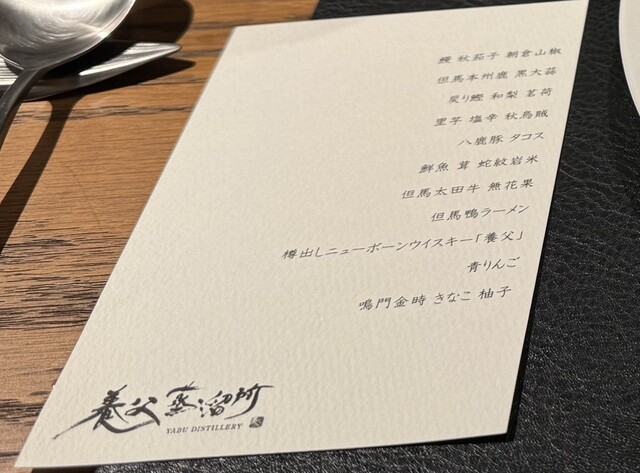 鰻 秋茄子 朝倉山椒
但馬本州鹿 黒大蒜
炙り鰹 和梨 茗荷
里芋 塩辛 秋烏賊
八鹿豚 タコス
鮮魚 茸 蛇紋岩米
但馬太田牛 無花果
但馬鴨ラーメン
樽出しニューボーンウイスキー「養父」
青りんご
鳴門金時 きなこ 柚子
養父蒸溜所
YABU DISTILLERY